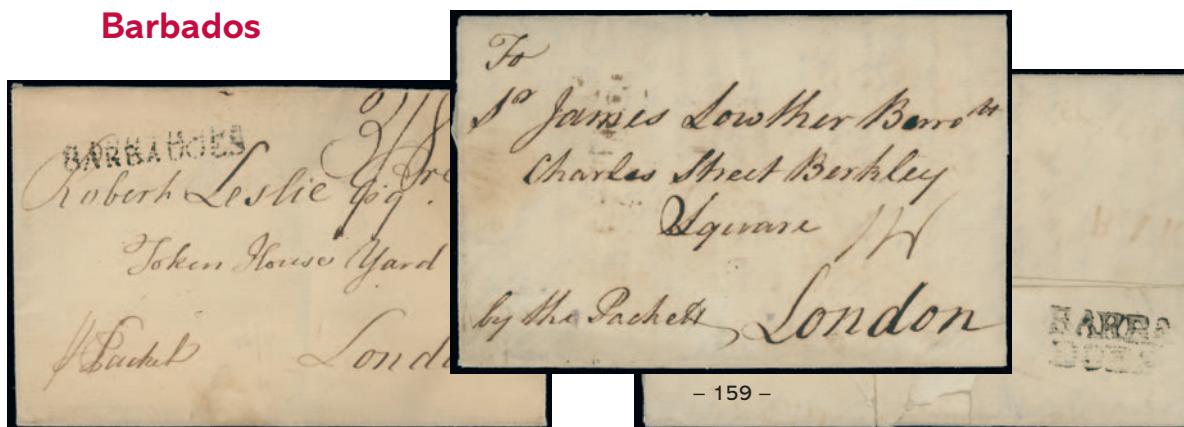 Barbados
BARBADOES
3/8
Robert Leslie Esq.
Token House Yard
Packet
Londo
To
Sr James Lowther Barrott
Charles Street Berkley
Square
by the Packett
London
BARBA
DOES
– 159 –